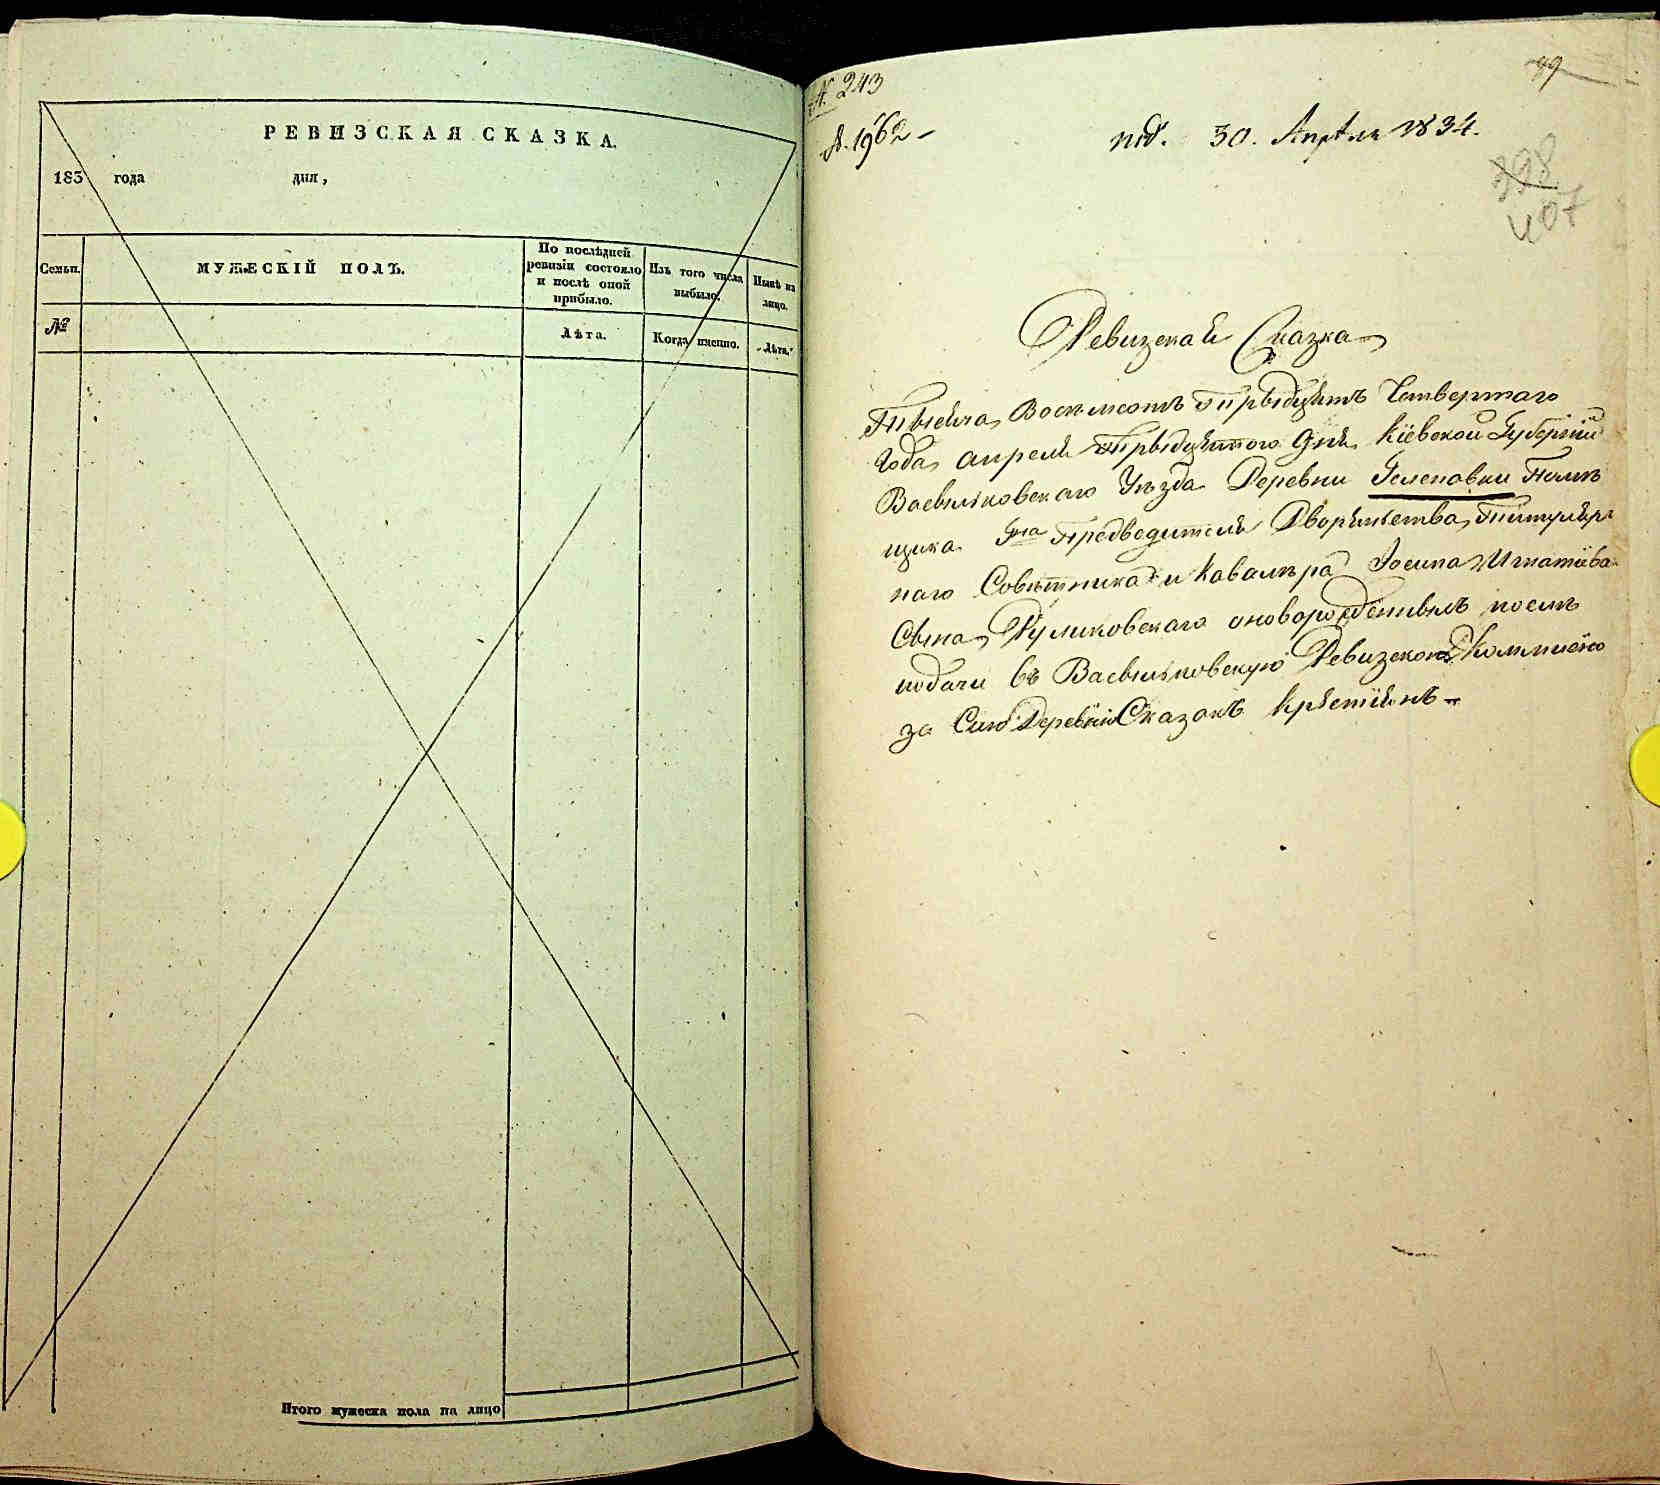 РЕВИЗСКАЯ СКАЗКА.
183 года дня,
Семьи.
МУЖЕСКІЙ ПОЛЪ.
По послѣдней
ревизіи состояло
и послѣ оной
прибыло.
Изъ того числа
выбыло.
Нынѣ на
лицо.
№
Лѣта.
Когда именно.
Лѣта.
Итого мужеска пола на лицо
№ 243
49
№. 1962 –
под. 30. Апрѣля 1834.
398
407
Ревизская Сказка
Тысяча Восемсотъ Трыдцать Четвертаго
Года апреля Трыдцатого Дня Кіевской Губерніи
Васильковского Уѣзда Деревни Помѣ
щика Гна Предводителя Дворянства Титуляр
наго Совѣтника и Кавалѣра Іосипа Игнатіева
Сына Руликовского о новорожденныхъ послѣ
подачи въ Васильковскую Ревизскою Коммисію
за Сию Деревню Сказокъ Крѣстіянъ –